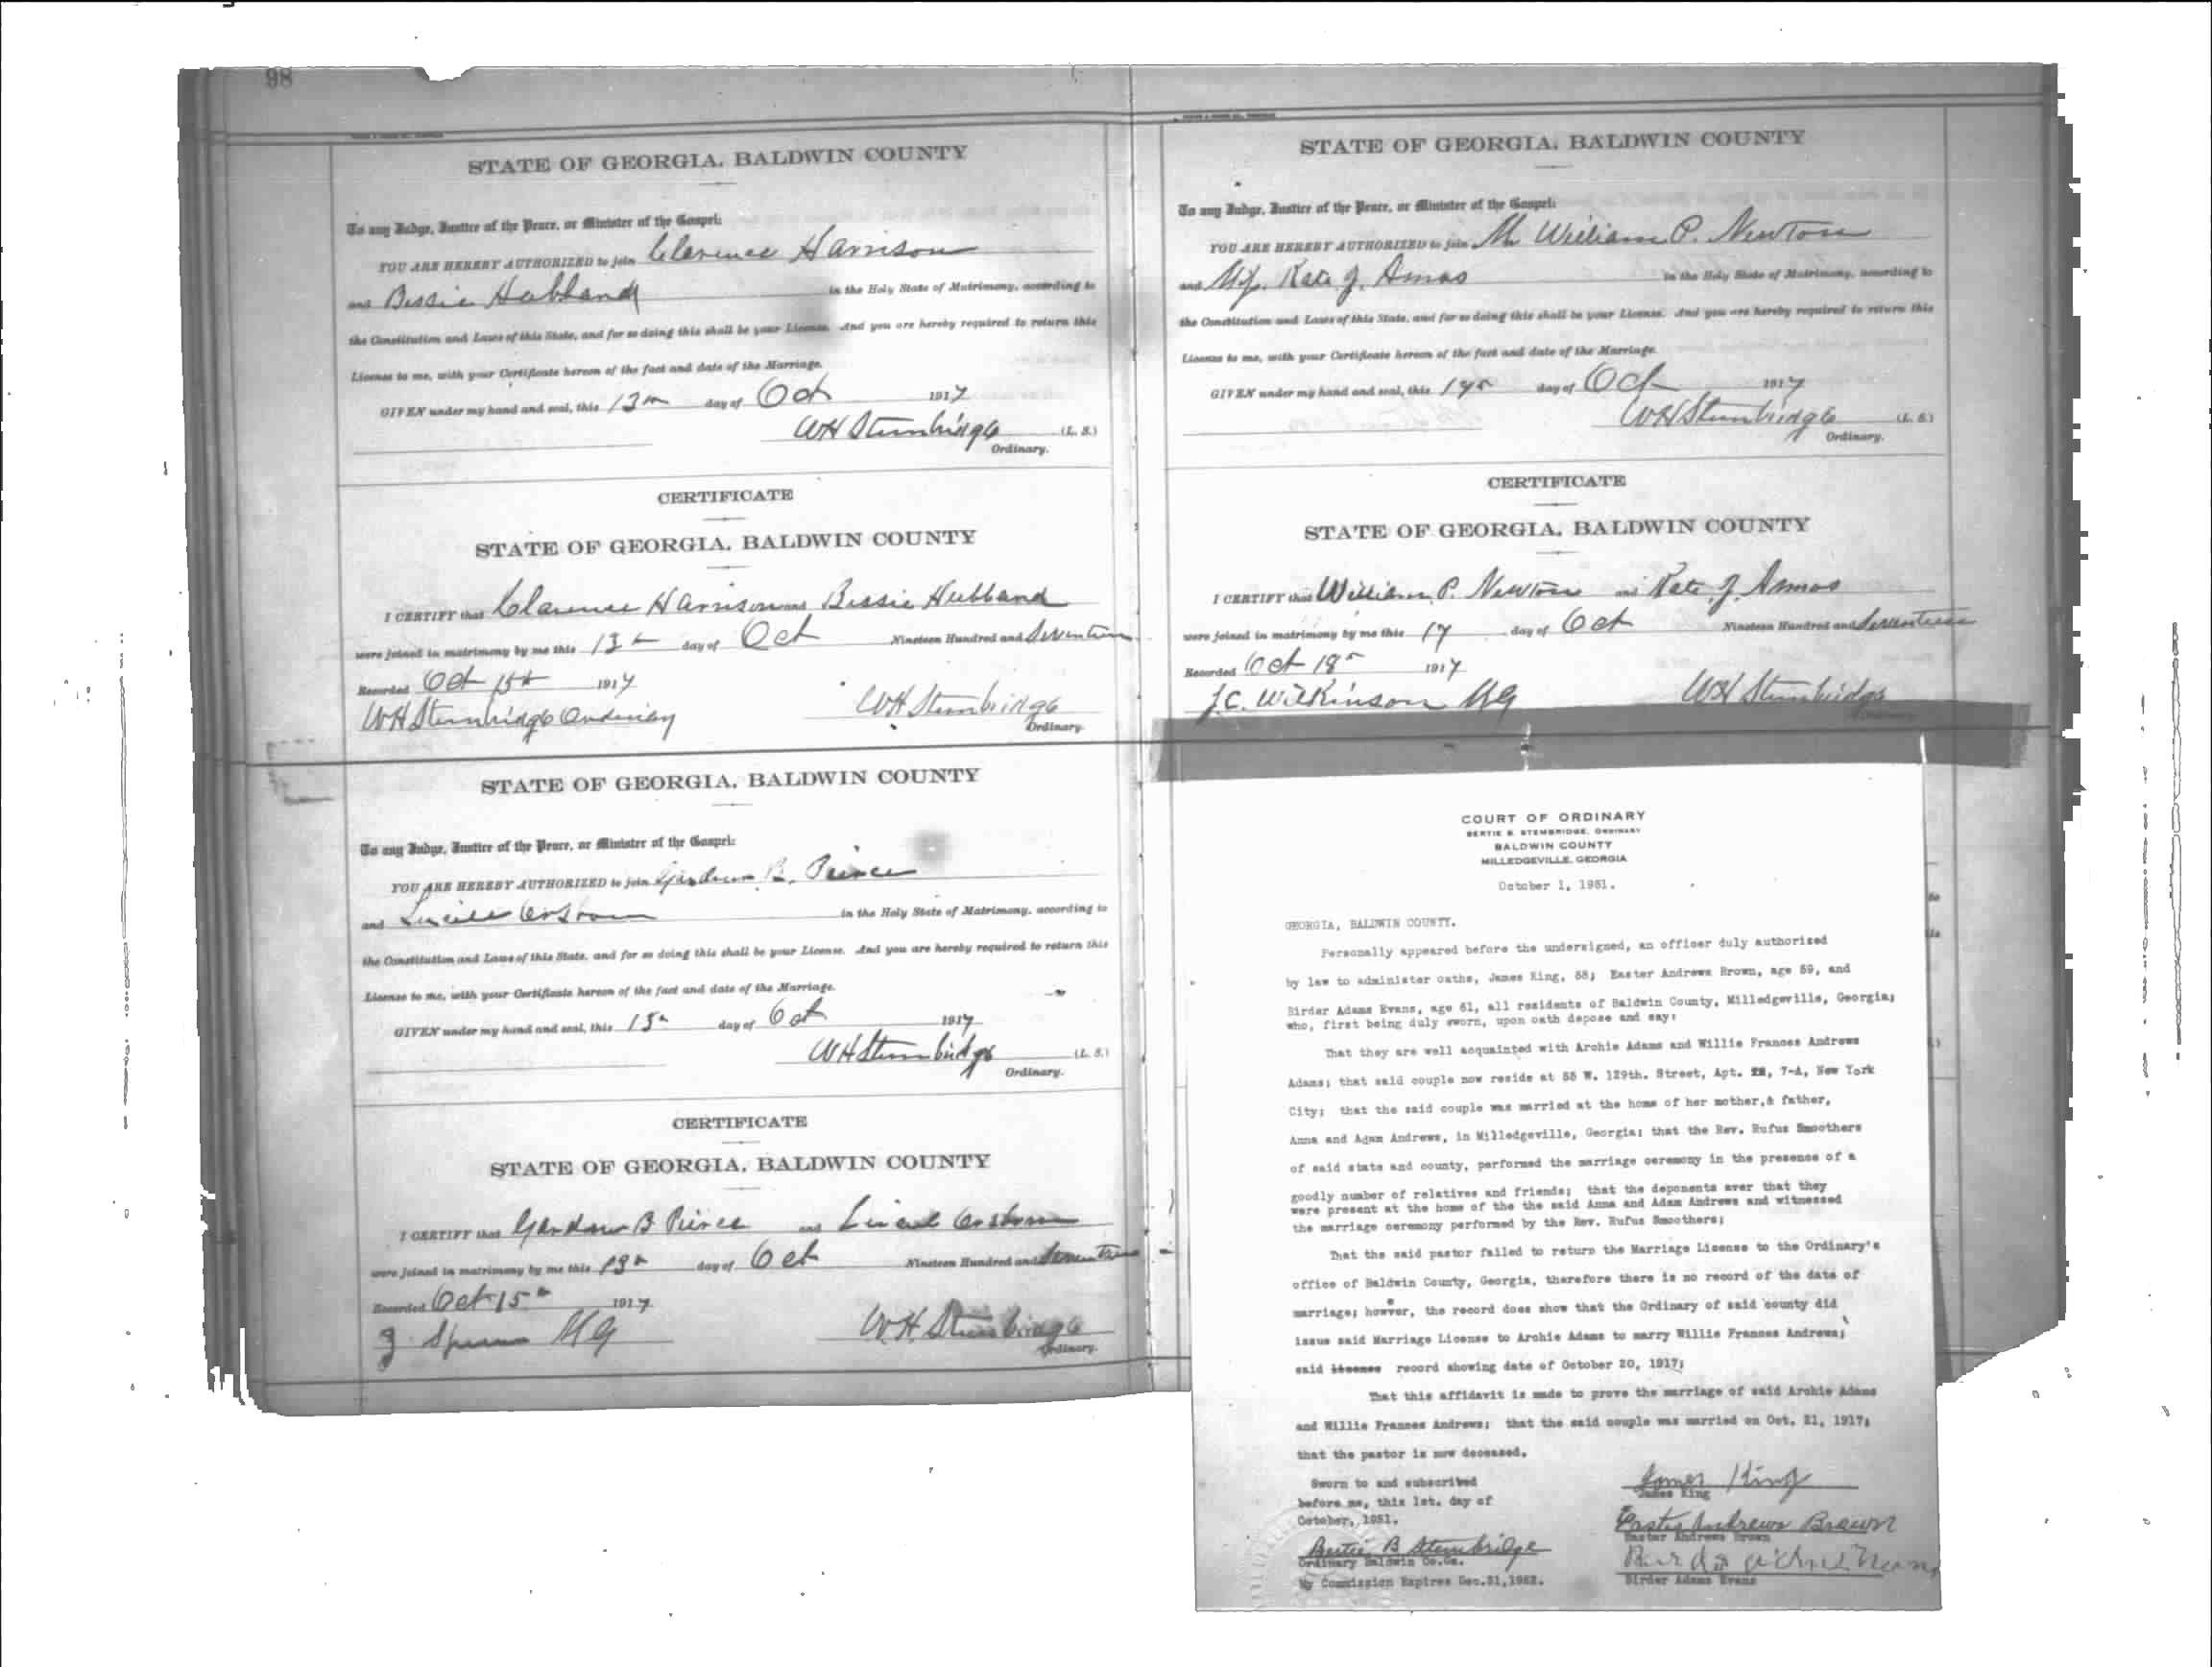 98
STATE OF GEORGIA, BALDWIN COUNTY
To any Judge, Justice of the Peace, or Minister of the Gospel:
YOU ARE HEREBY AUTHORIZED to join Clarence Harrison
and Bessie Hubband in the Holy State of Matrimony, according to
the Constitution and Laws of this State, and for so doing this shall be your License. And you are hereby required to return this
License to me, with your Certificate hereon of the fact and date of the Marriage.
GIVEN under my hand and seal, this 13th day of Oct 1917
WH Stembridge (L. S.)
Ordinary.
CERTIFICATE
STATE OF GEORGIA, BALDWIN COUNTY
I CERTIFY that Clarence Harrison and Bessie Hubband
were joined in matrimony by me this 13th day of Oct Nineteen Hundred and Seventeen
Recorded Oct 15th 1917
WH Stembridge Ordinary WH Stembridge
Ordinary.
STATE OF GEORGIA, BALDWIN COUNTY
To any Judge, Justice of the Peace, or Minister of the Gospel:
YOU ARE HEREBY AUTHORIZED to join B.
and in the Holy State of Matrimony, according to
the Constitution and Laws of this State, and for so doing this shall be your License. And you are hereby required to return this
License to me, with your Certificate hereon of the fact and date of the Marriage.
GIVEN under my hand and seal, this day of Oct 1917
WH Stembridge (L. S.)
Ordinary.
CERTIFICATE
STATE OF GEORGIA, BALDWIN COUNTY
I CERTIFY that B and
were joined in matrimony by me this day of Oct Nineteen Hundred and Seventeen
Recorded Oct 15th 1917
MG WH Stembridge
Ordinary.
STATE OF GEORGIA, BALDWIN COUNTY
To any Judge, Justice of the Peace, or Minister of the Gospel:
YOU ARE HEREBY AUTHORIZED to join Mr William P. Newton
and Kate J. Amos in the Holy State of Matrimony, according to
the Constitution and Laws of this State, and for so doing this shall be your License. And you are hereby required to return this
License to me, with your Certificate hereon of the fact and date of the Marriage.
GIVEN under my hand and seal, this 17th day of Oct 1917
WH Stembridge (L. S.)
Ordinary.
CERTIFICATE
STATE OF GEORGIA, BALDWIN COUNTY
I CERTIFY that William P. Newton and Kate J. Amos
were joined in matrimony by me this 17 day of Oct Nineteen Hundred and Seventeen
Recorded Oct 18th 1917
J.C. Wilkinson MG WH Stembridge
Ordinary.
COURT OF ORDINARY
BERTIE B. STEMBRIDGE, ORDINARY
BALDWIN COUNTY
MILLEDGEVILLE, GEORGIA
October 1, 1951.
GEORGIA, BALDWIN COUNTY.
Personally appeared before the undersigned, an officer duly authorized
by law to administer oaths, James King, 58; Easter Andrews Brown, age 59, and
Birder Adams Evans, age 61, all residents of Baldwin County, Milledgeville, Georgia;
who, first being duly sworn, upon oath depose and say:
That they are well acquainted with Archie Adams and Willie Frances Andrews
Adams; that said couple now reside at 55 W. 129th. Street, Apt. 7-A, New York
City; that the said couple was married at the home of her mother,& father,
Anna and Adam Andrews, in Milledgeville, Georgia; that the Rev. Rufus Smoothers
of said state and county, performed the marriage ceremony in the presence of a
goodly number of relatives and friends; that the deponents aver that they
were present at the home of the the said Anna and Adam Andrews and witnessed
the marriage ceremony performed by the Rev. Rufus Smoothers;
That the said pastor failed to return the Marriage License to the Ordinary's
office of Baldwin County, Georgia, therefore there is no record of the date of
marriage; however, the record does show that the Ordinary of said county did
issue said Marriage License to Archie Adams to marry Willie Frances Andrews;
said license record showing date of October 20, 1917;
That this affidavit is made to prove the marriage of said Archie Adams
and Willie Frances Andrews; that the said couple was married on Oct. 21, 1917;
that the pastor is now deceased.
Sworn to and subscribed
before me, this 1st. day of
October, 1951.
Bertie B Stembridge
Ordinary Baldwin Co.Ga.
My Commission Expires Dec.31,1952.
James King
James King
Easter Andrews Brown
Easter Andrews Brown
Birder Adams Evans